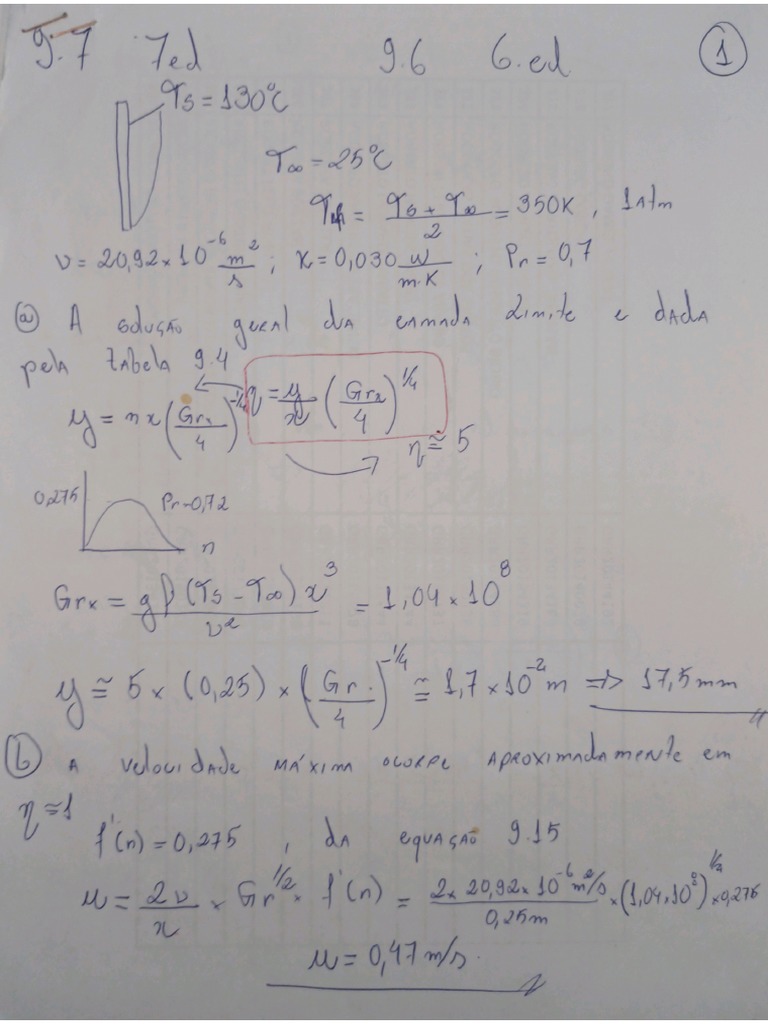 9.7 7ed 9.6 6.ed 1
Ts = 130°C
T∞ = 25°C
Tf = Ts + T∞ / 2 = 350K, 1Atm
ν = 20,92 × 10^-6 m²/s ; K = 0,030 w/m.K ; Pr = 0,7
a) A solução geral da camada limite e dada
pela tabela 9.4
y = n x (Grx/4)^-1/4 η = y/x (Grx/4)^1/4
η ≅ 5
0,275 Pr=0,72
n
Grx = gβ(Ts - T∞) x³ / ν² = 1,04 × 10^8
y ≅ 5 × (0,25) × (Gr./4)^-1/4 ≅ 1,7 × 10^-2 m ⇒ 17,5mm
b) A velocidade máxima ocorre aproximadamente em
η ≈ 1
f'(n) = 0,275 , da equação 9.15
u = 2ν/x × Gr^1/2 × f'(n) = 2 × 20,92 × 10^-6 m²/s / 0,25m × (1,04×10^8)^1/2 × 0,275
u = 0,47 m/s.